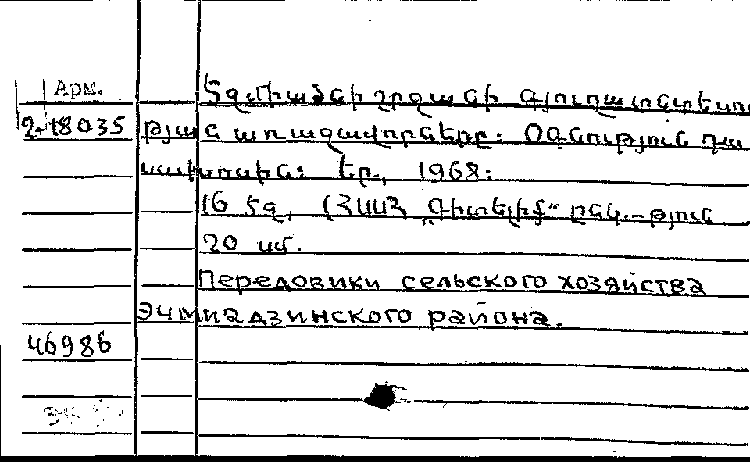 Арм.
Էջմիածնի շրջանի գյուղատնտեսու
2-18035 թյան առաջավորները: Օգնություն դա
սախոսին: Եր., 1968:
16 էջ, (ՀՍՍՀ „Գիտելիք“ ընկ.-թյուն
20 սմ.
Передовики сельского хозяйства
Эчмиадзинского района.
46986